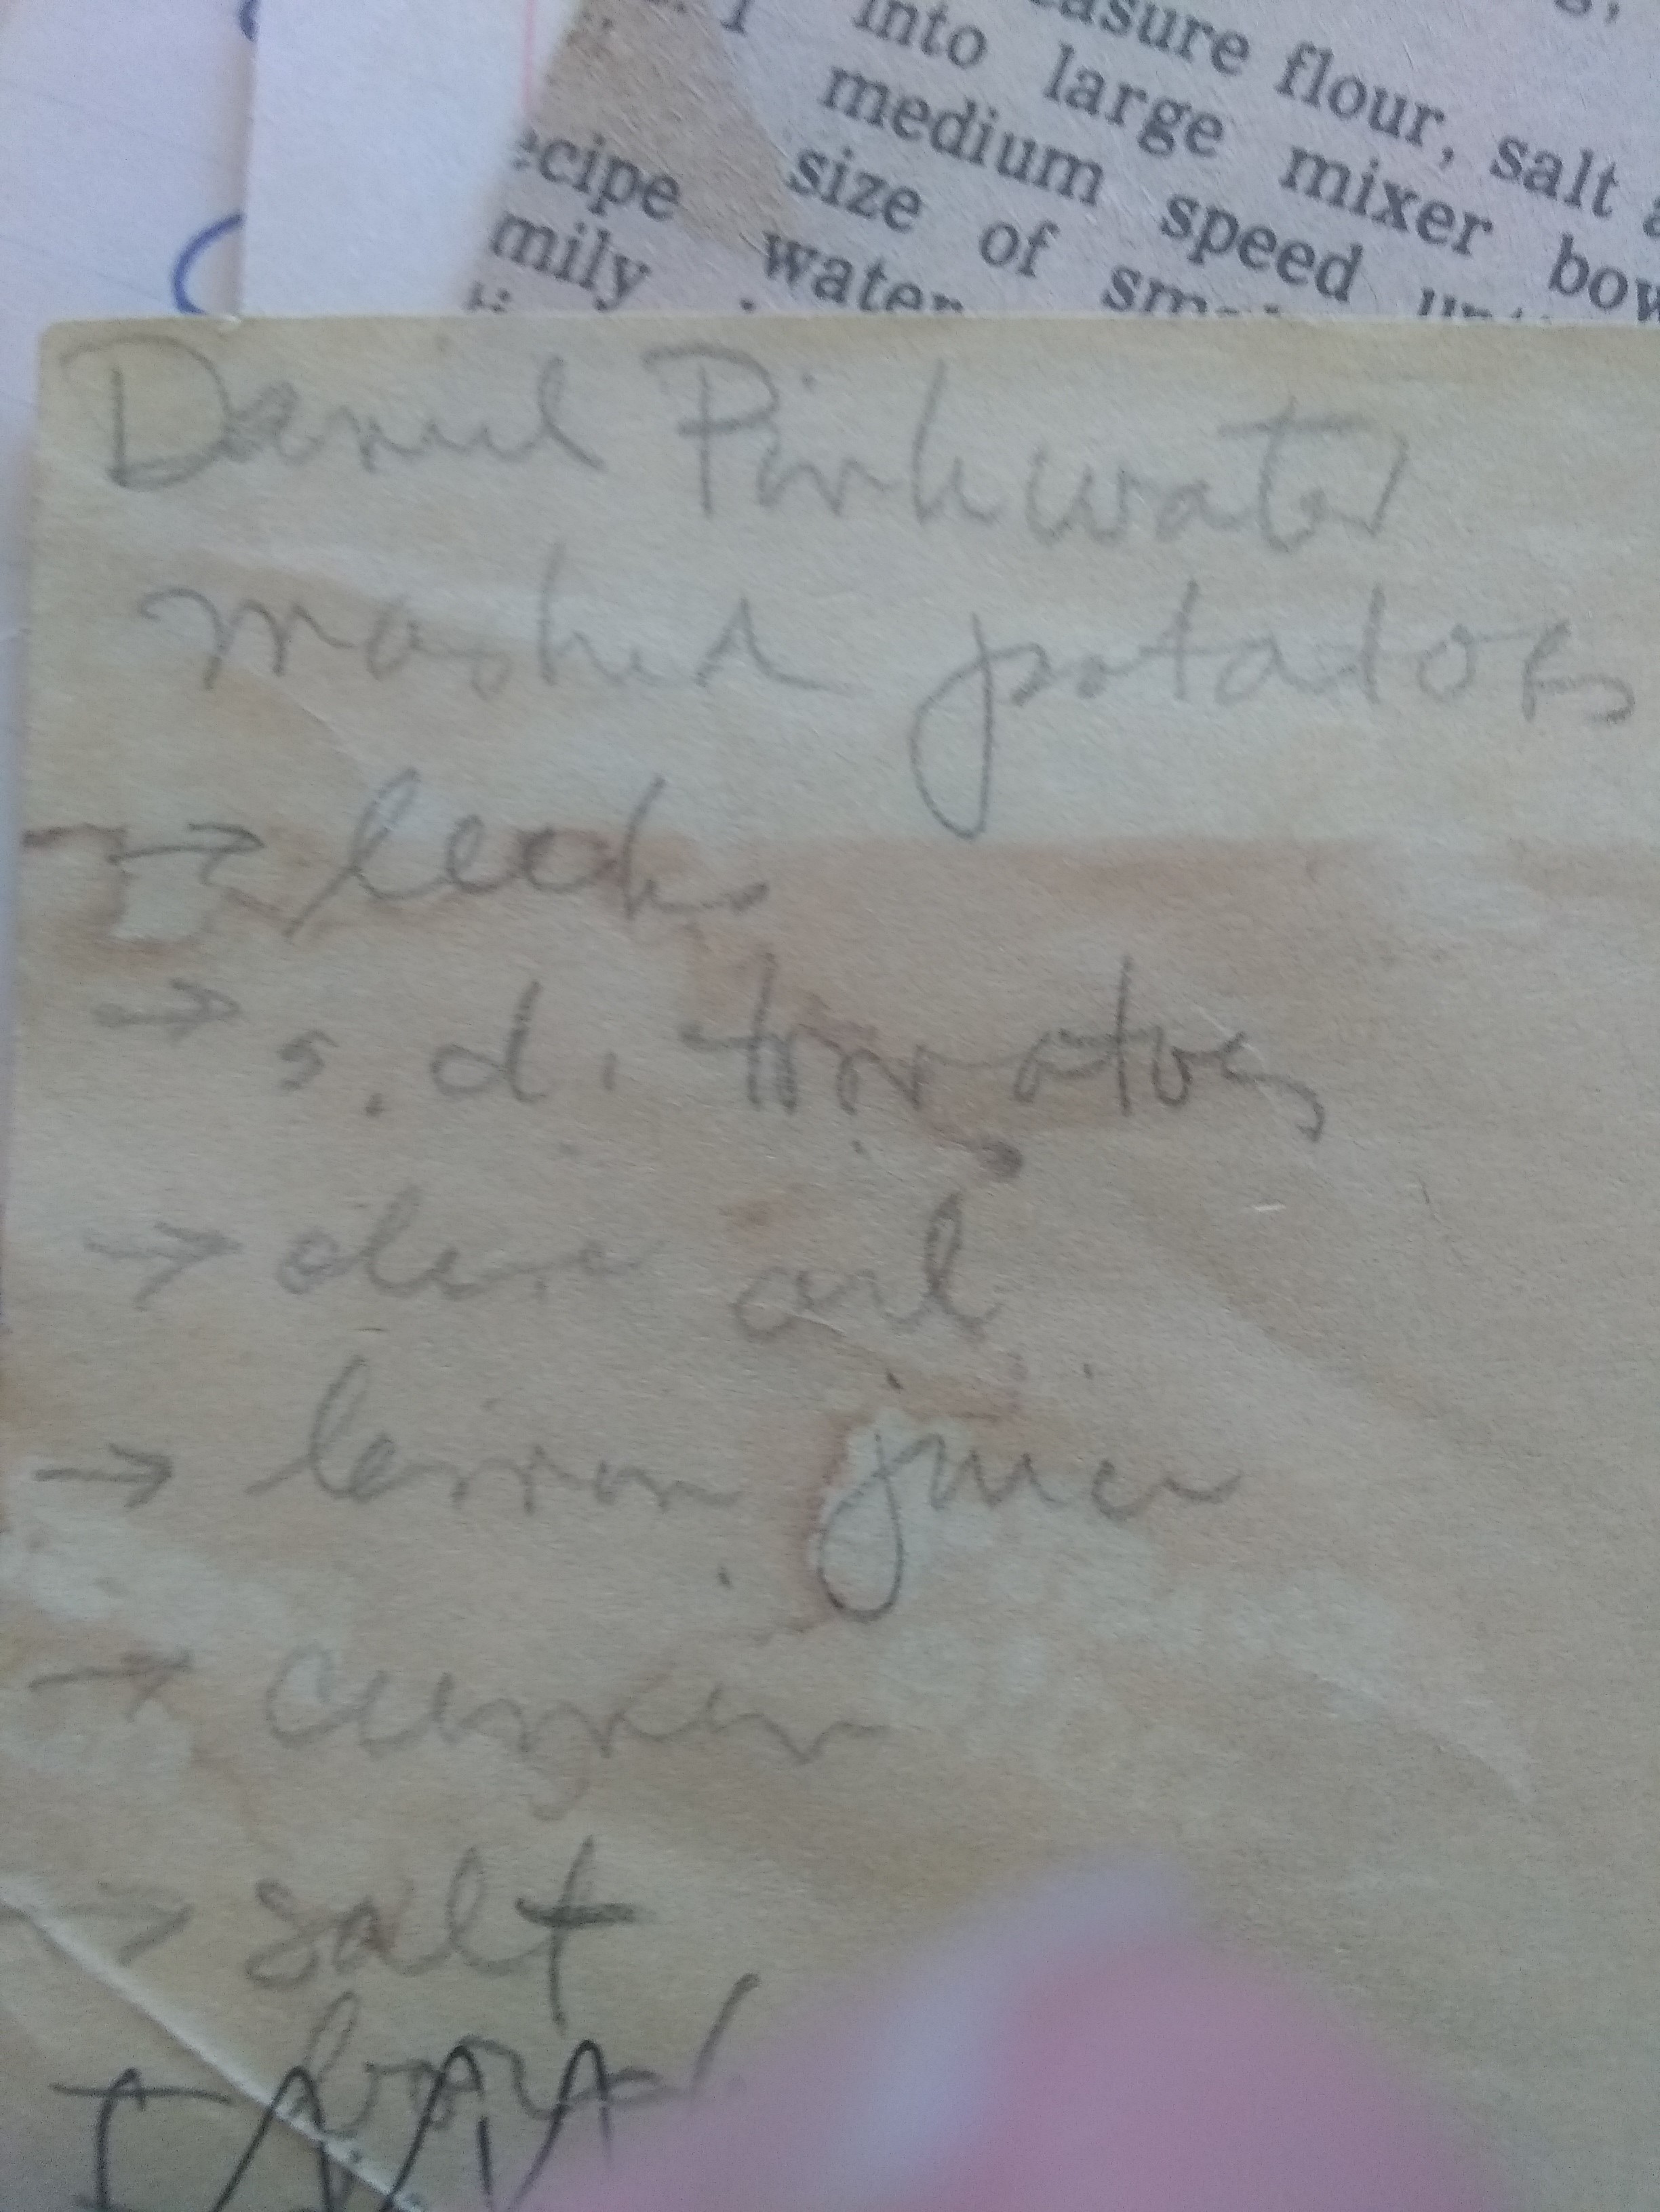 easure flour, salt
into large mixer bow
medium speed
ecipe size of
mily water
Daniel Pinkwater
mashed potatoes
→ leeks
→ s.d. tomatoes
→ olive oil
→ lemon juice
→ cumin
→ salt